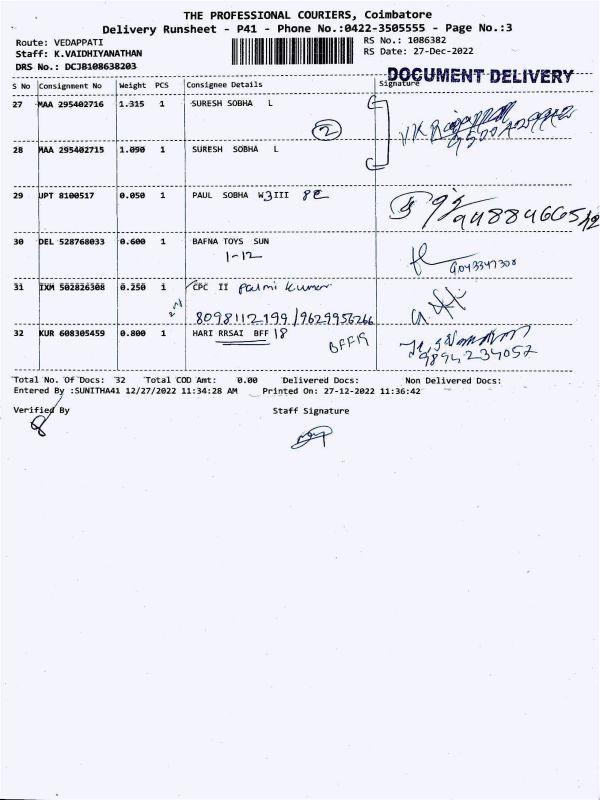 THE PROFESSIONAL COURIERS, Coimbatore
Delivery Runsheet - P41 - Phone No.:0422-3505555 - Page No.:3
Route: VEDAPPATI RS No.: 1086382
Staff: K.VAIDHIYANATHAN RS Date: 27-Dec-2022
DRS No.: DCJB108638203
DOCUMENT DELIVERY
S No Consignment No Weight PCS Consignee Details Signature
27 MAA 295402716 1.315 1 SURESH SOBHA L
2
28 MAA 295402715 1.090 1 SURESH SOBHA L
29 UPT 8100517 0.050 1 PAUL SOBHA W3III 8E
30 DEL 528768033 0.600 1 BAFNA TOYS SUN
1-12
31 IXM 502826308 0.250 1 CPC II Palmi Kumar
8098112199 / 9629956266
32 KUR 608305459 0.800 1 HARI RRSAI BFF 18
BFF19
9894234057
Total No. Of Docs: 32 Total COD Amt: 0.00 Delivered Docs: Non Delivered Docs:
Entered By :SUNITHA41 12/27/2022 11:34:28 AM Printed On: 27-12-2022 11:36:42
Verified By Staff Signature